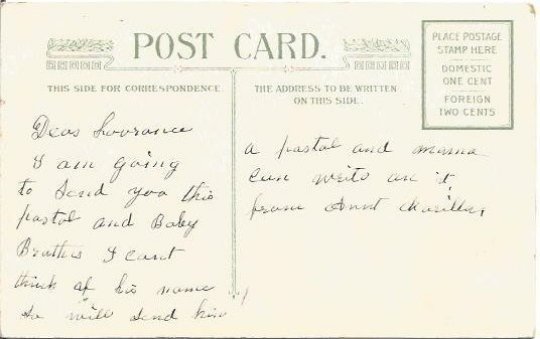 POST CARD.
THIS SIDE FOR CORRESPONDENCE
THE ADDRESS TO BE WRITTEN
ON THIS SIDE.
PLACE POSTAGE
STAMP HERE
DOMESTIC
ONE CENT
FOREIGN
TWO CENTS
Dear
I am going
to Send you this
postal and Baby
Brothers I cant
think of his name
so will send him
a postal and mama
can write on it
from Aunt